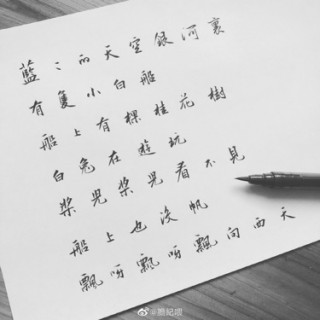 藍〻的天空銀河裏
有隻小白船
船上有棵桂花樹
白兔在遊玩
槳兒槳兒看不見
船上也沒帆
飄呀飄呀飄向西天